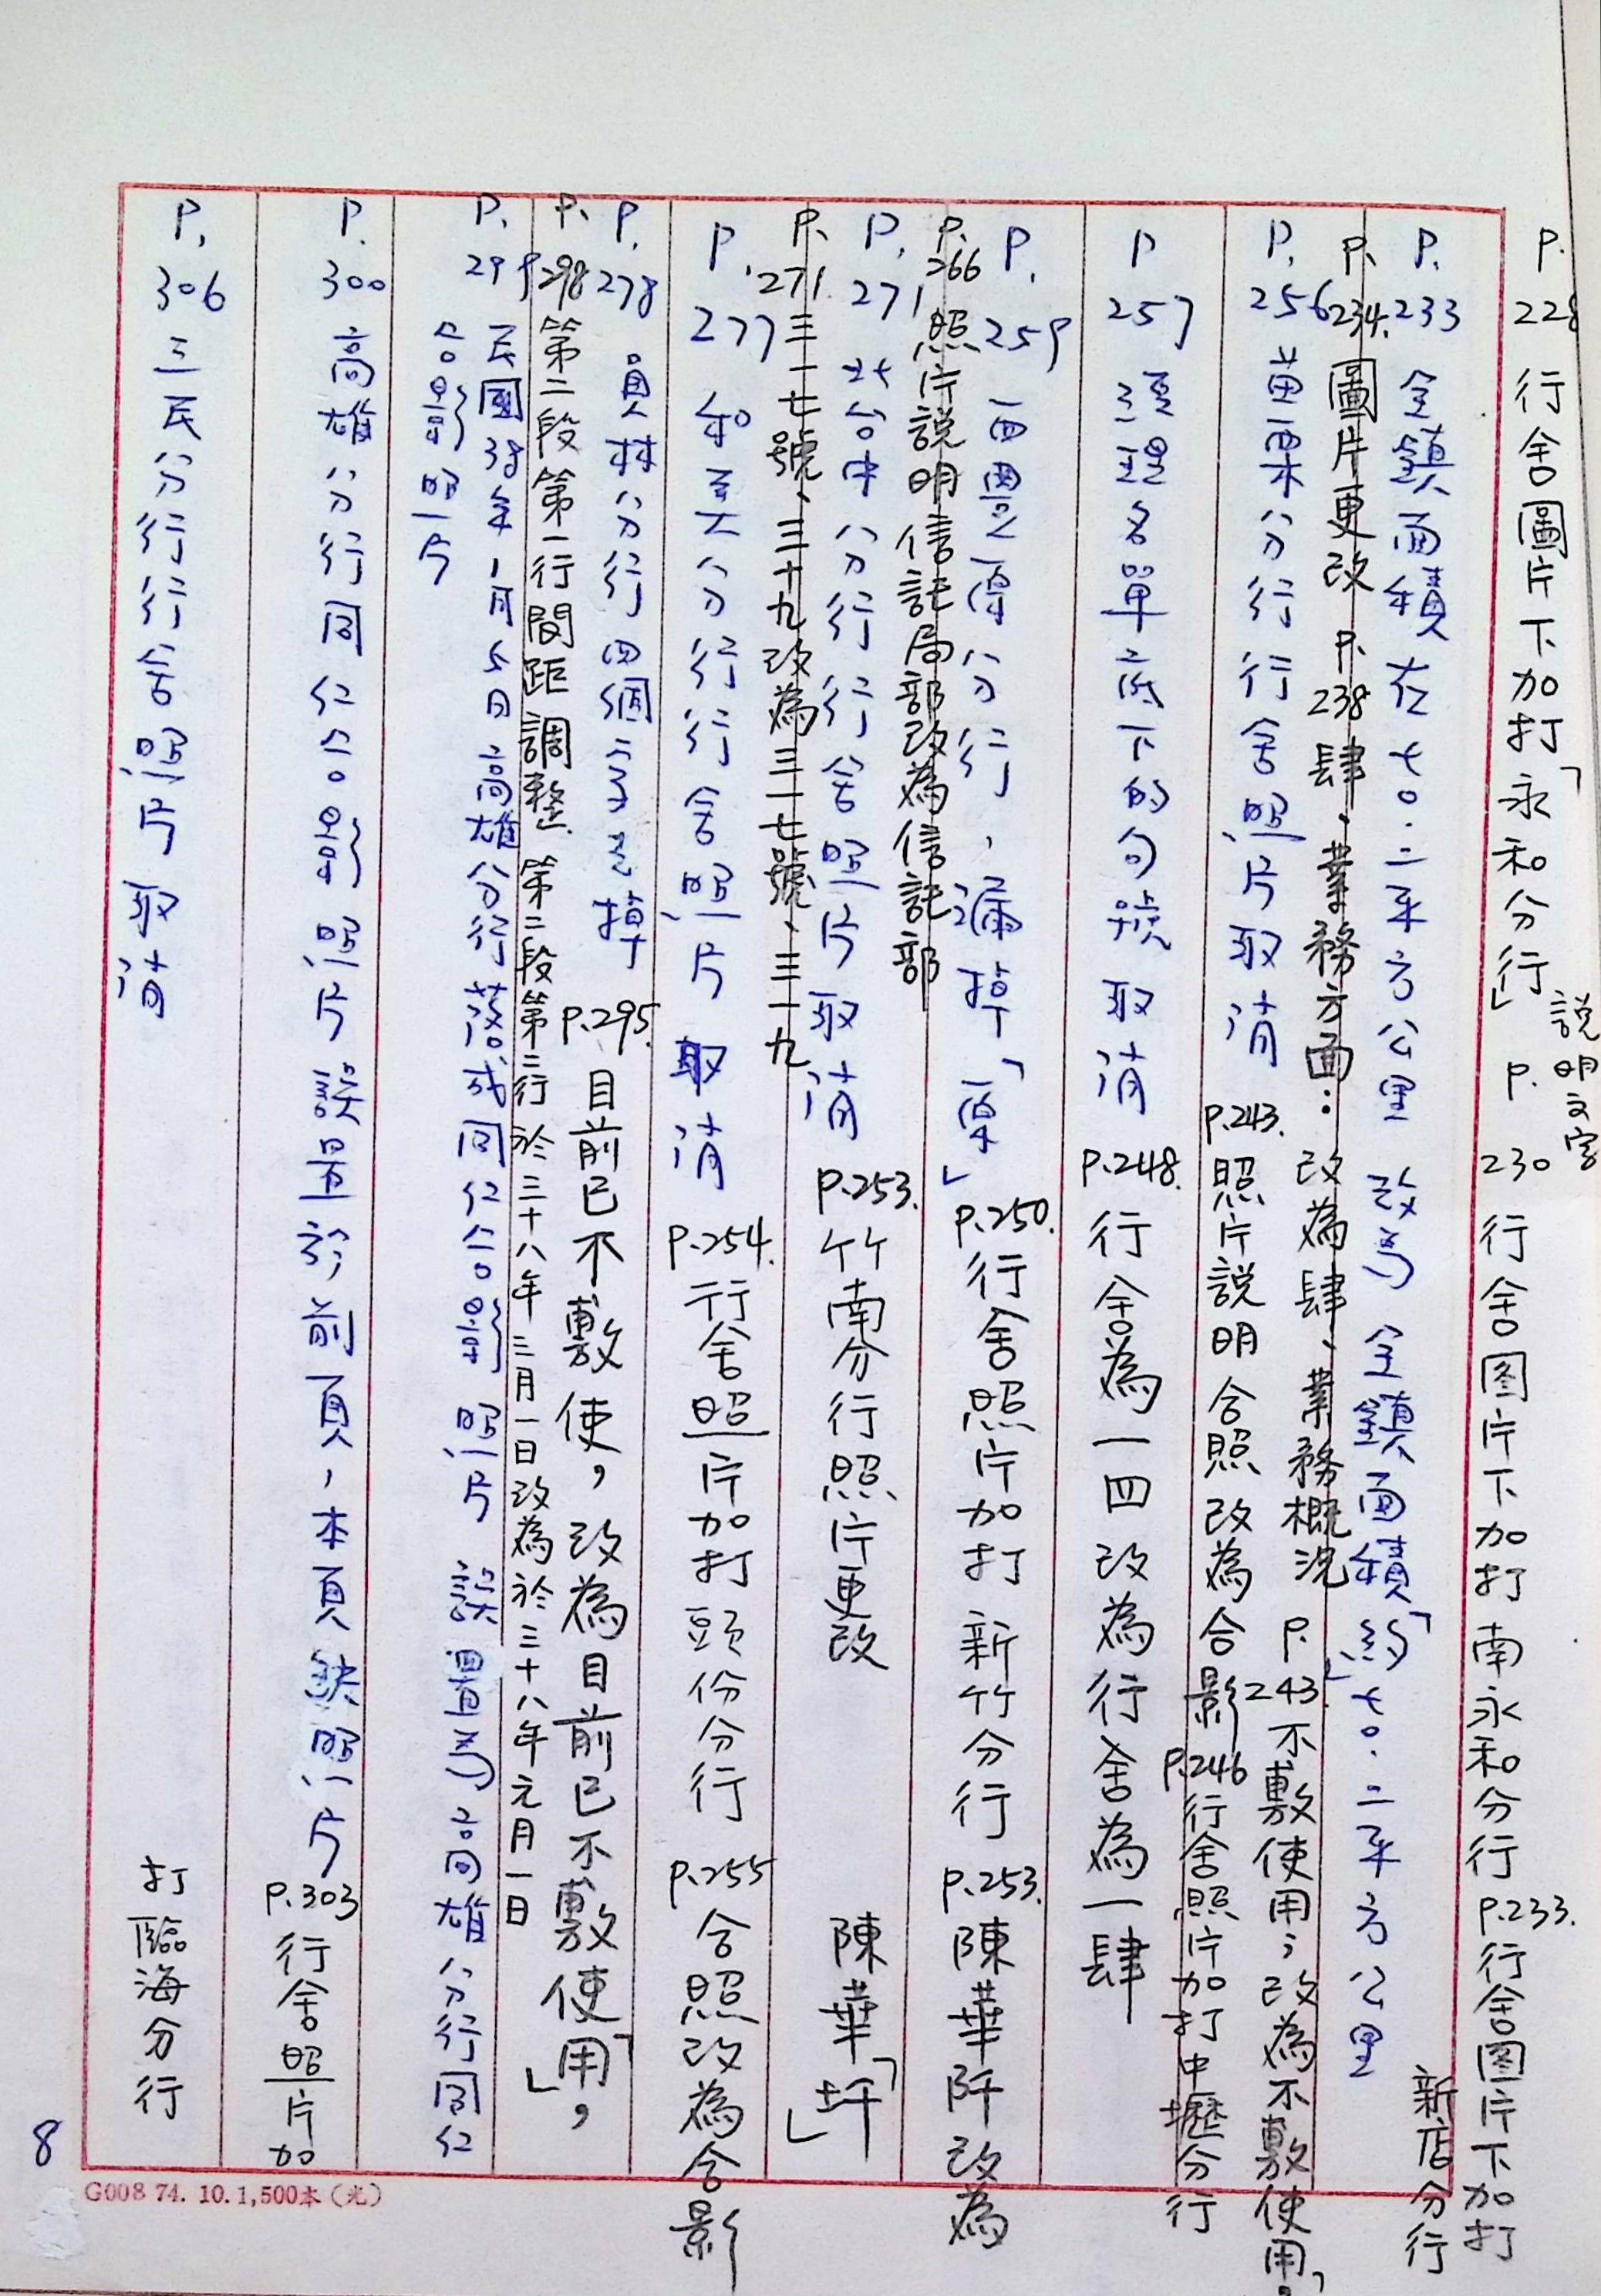 P.228 行舍圖片下加打「永和分行」 P.230 行舍図片下加打 南永和分行 P.233. 行舍図片下加打
說明文字
新店分行
P.233 全鎮面積在七〇.二平方公里 改為 全鎮面積「約」七〇.二平方公里
P.234. 圖片更改 P.238 肆、業務方面：改為肆、業務概況 P.243 不敷使用；改為不敷使用，
P.256 苗栗分行行舍照片取消 P.243. 照片說明 合照 改為合影 P.246 行舍照片加打中壢分行
P 257 經理名單底下的句號取消 P.248. 行舍為一四 改為 行舍為一肆
P.259 西豐原分行，漏掉「原」 P.250. 行舍照片加打 新竹分行 P.253. 陳華阡 改為
P.266 照片說明信託局部改為信託部
P.271 北台中分行行舍照片取消 P.253. 竹南分行照片更改 陳華「圲」
P.271. 三一七號、三十九改為三一七號、三一九
P.277 和美分行行舍照片取消 P.254. 行舍照片加打 頭份分行 P.255 合照改為合影
P.278 員林分行四個字去掉 P.295. 目前已不敷使，改為目前已不敷使「用」，
P.298 第二段第一行間距調整. 第二段第三行 於三十八年三月一日改為於三十八年元月一日
P.299 民國38年1月5日高雄分行落成同仁合影照片 誤置為高雄分行同仁
合影照片
P.300 高雄分行同仁合影照片誤置於前頁，本頁缺照片 P.303 行舍照片加
打臨海分行
P.306 三民分行行舍照片取消
8
G008 74. 10. 1,500本（光）